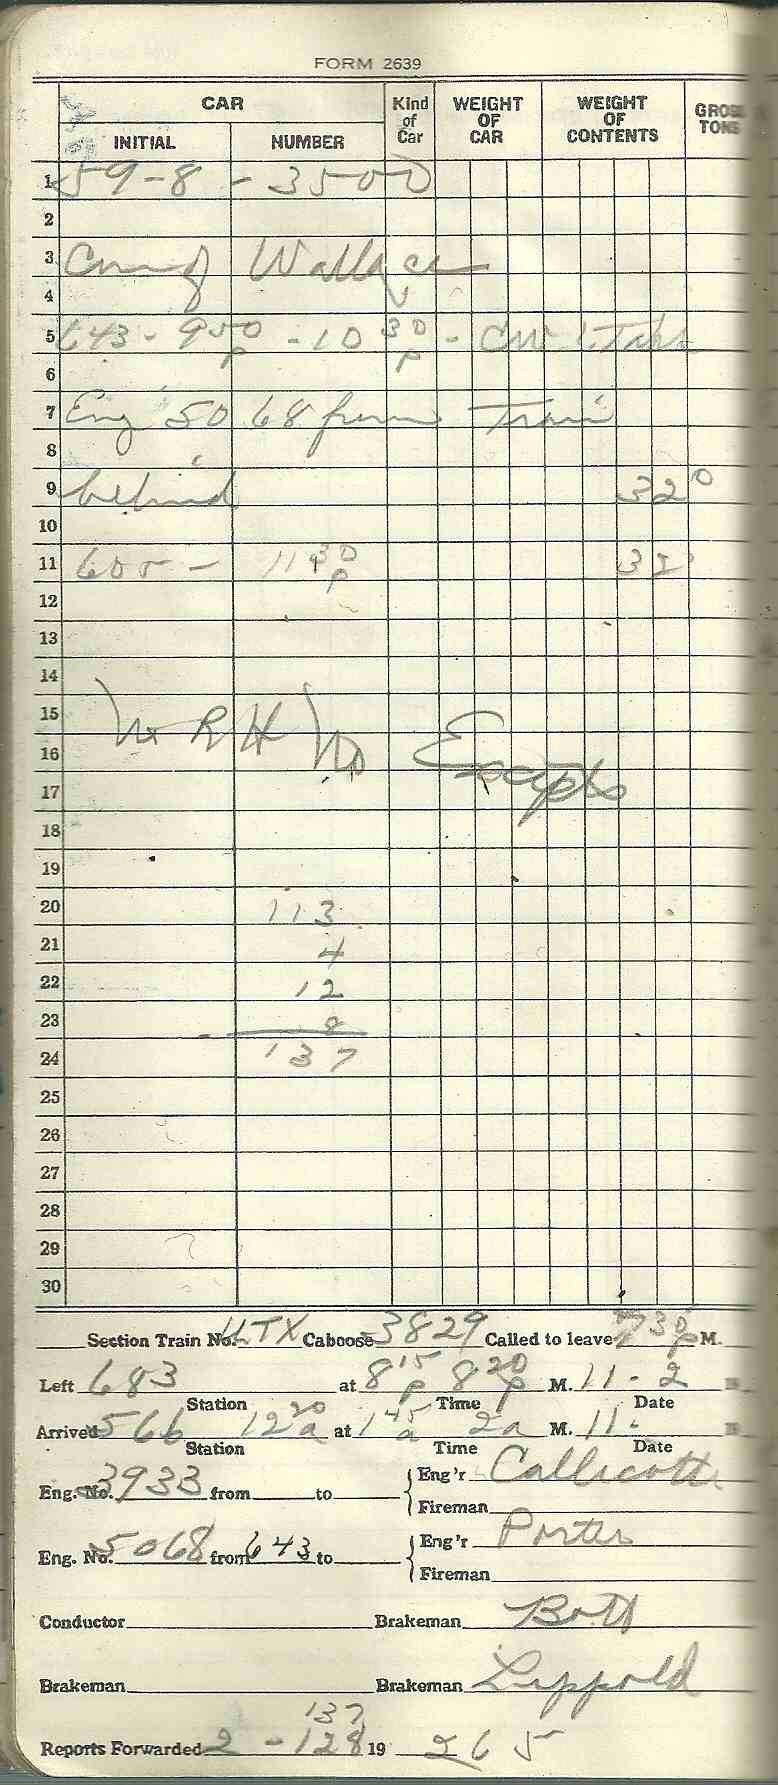 FORM 2639
CAR Kind of Car WEIGHT OF CAR WEIGHT OF CONTENTS GROSS TONS
INITIAL NUMBER
1 59-8 - 3500
2
3 Wallace
4
5 643 - 9 50 p - 10 30 p -
6
7 Eng 5068 from Train
8
9 behind 320
10
11 605 - 11 30 p
12
13
14
15
16
17
18
19
20 113
21 4
22 12
23 8
24 137
25
26
27
28
29
30
Section Train No. Caboose 3829 Called to leave 7 30 p M.
Left 683 at 8 15 p 8 20 p M. 11 - 2
Station Time Date
Arrived 566 12 20 a at 1 45 a 2 a M. 11 -
Station Time Date
Eng. No. 3933 from to Eng'r Callicott
Fireman
Eng. No. 5068 from 643 to Eng'r Porter
Fireman
Conductor Brakeman Bott
Brakeman Brakeman Lippold
137
Reports Forwarded 2 - 128 19 265